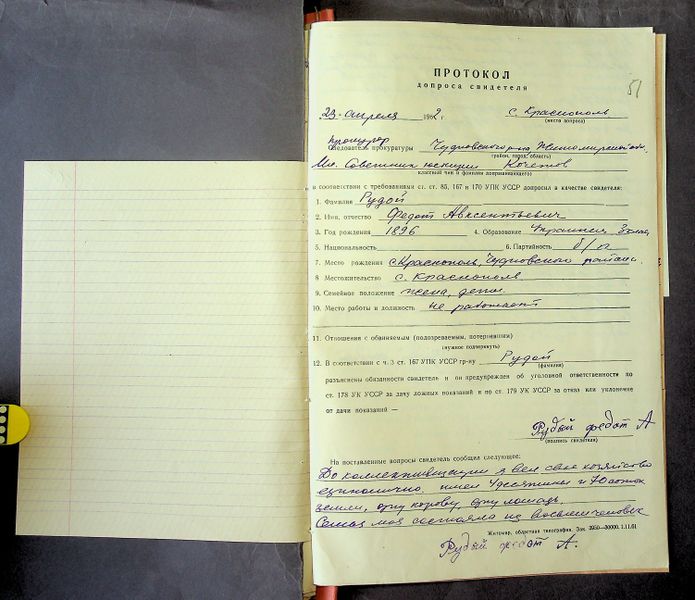 51
ПРОТОКОЛ
допроса свидетеля
23 апреля 1962 г. с. Краснополь
(место допроса)
Прокурор
Следователь прокуратуры Чудновского р-на Житомирской обл.
(район, город, область)
Мл. Советник юстиции Кочетов
классный чин и фамилия допрашивающего)
в соответствии с требованиями ст. ст. 85, 167 и 170 УПК УССР допросил в качестве свидетеля:
1. Фамилия Рудой
2. Имя, отчество Федот Авксентьевич
3. Год рождения 1896 4. Образование
5. Национальность 6. Партийность б/п
7. Место рождения с. Краснополь, Чудновского района
8. Местожительство с. Краснополь
9. Семейное положение жена, дети
10. Место работы и должность не работает
11. Отношения с обвиняемым (подозреваемым, потерпевшим)
(нужное подчеркнуть)
12. В соответствии с ч. 3 ст. 167 УПК УССР гр-ну Рудой
(фамилия)
разъяснены обязанности свидетеля и он предупрежден об уголовной ответственности по
ст. 178 УК УССР за дачу ложных показаний и по ст. 179 УК УССР за отказ или уклонение
от дачи показаний —
Рудый федот А
(подпись свидетеля)
На поставленные вопросы свидетель сообщил следующее:
До коллективизации я вел свое хозяйство
единолично, имел 4 десятины и 70 соток
земли, одну корову, одну лошадь.
Семья моя состояла из восьми человек
Житомир, областная типография. Зак. 3950—30000. 1.11.61
Рудый федот А.